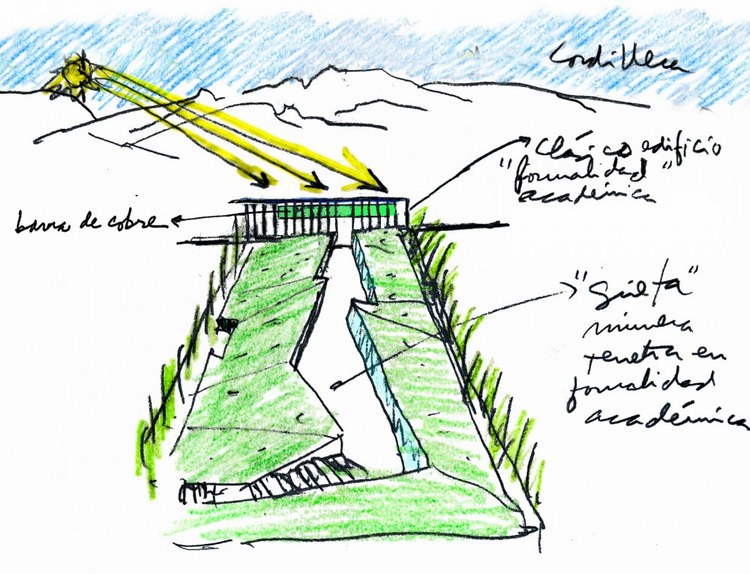 Cordillera
Clásico edificio
"formalidad"
académica
barra de cobre
"Grieta"
minera
penetra en
formalidad
académica